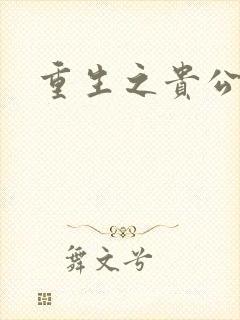 重生之貴公
舞文兮